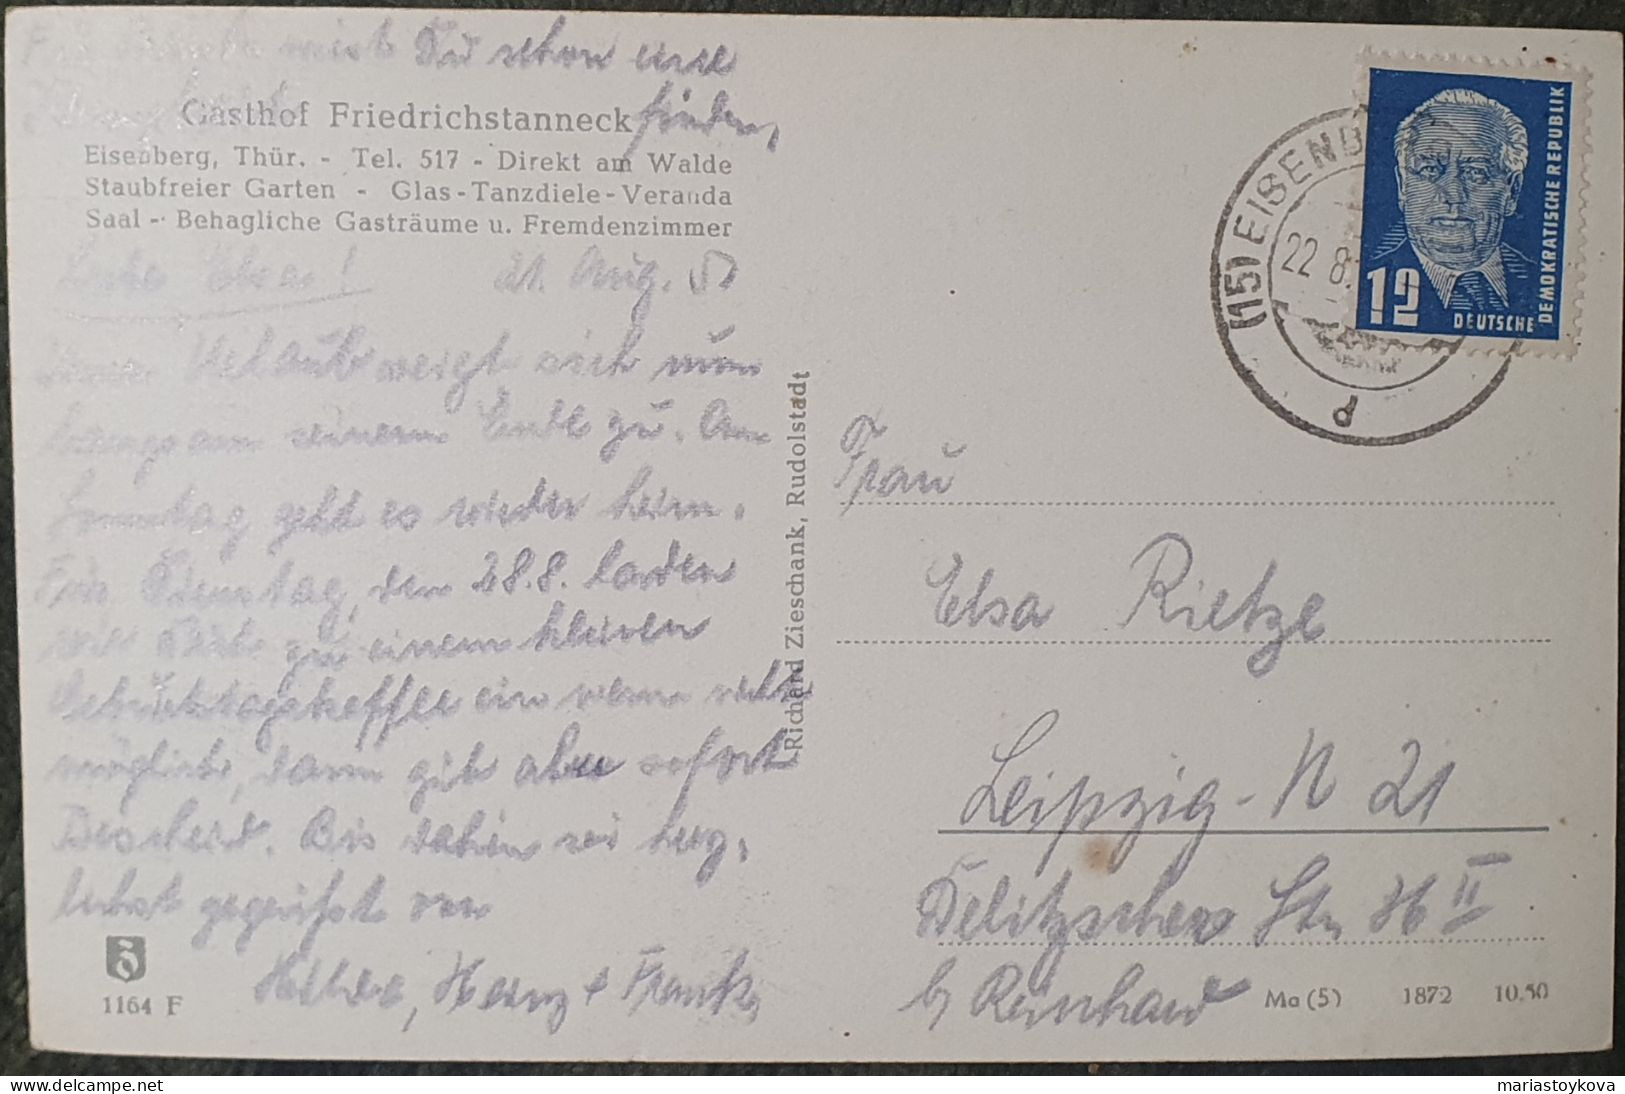 wirst Du schon eine
finden,
Gasthof Friedrichstanneck
Eisenberg, Thür. - Tel. 517 - Direkt am Walde
Staubfreier Garten - Glas-Tanzdiele-Veranda
Saal - Behagliche Gasträume u. Fremdenzimmer
Liebe Elsa! 21. Aug. 51
Urlaub neigt sich nun
seinem Ende zu. Am
Sonntag geht es wieder heim.
Für Dienstag, den 28.8. laden
wir Dich zu einem kleinen
Geburtstagskaffee ein wenn nicht
möglich, dann gib aber sofort
Bescheid. Bis dahin sei herz-
lichst gegrüßt von
Heinz + Frank,
1164 F
Richard Zieschank, Rudolstadt
(15) EISENB
22 8.
d
12
DEUTSCHE
DEMOKRATISCHE REPUBLIK
Frau
Elsa Rietze
Leipzig - N 21
Delitzscher Str. II
b/ Reinhardt
Ma (5) 1872 10.50
delcampe.net
mariastoykova